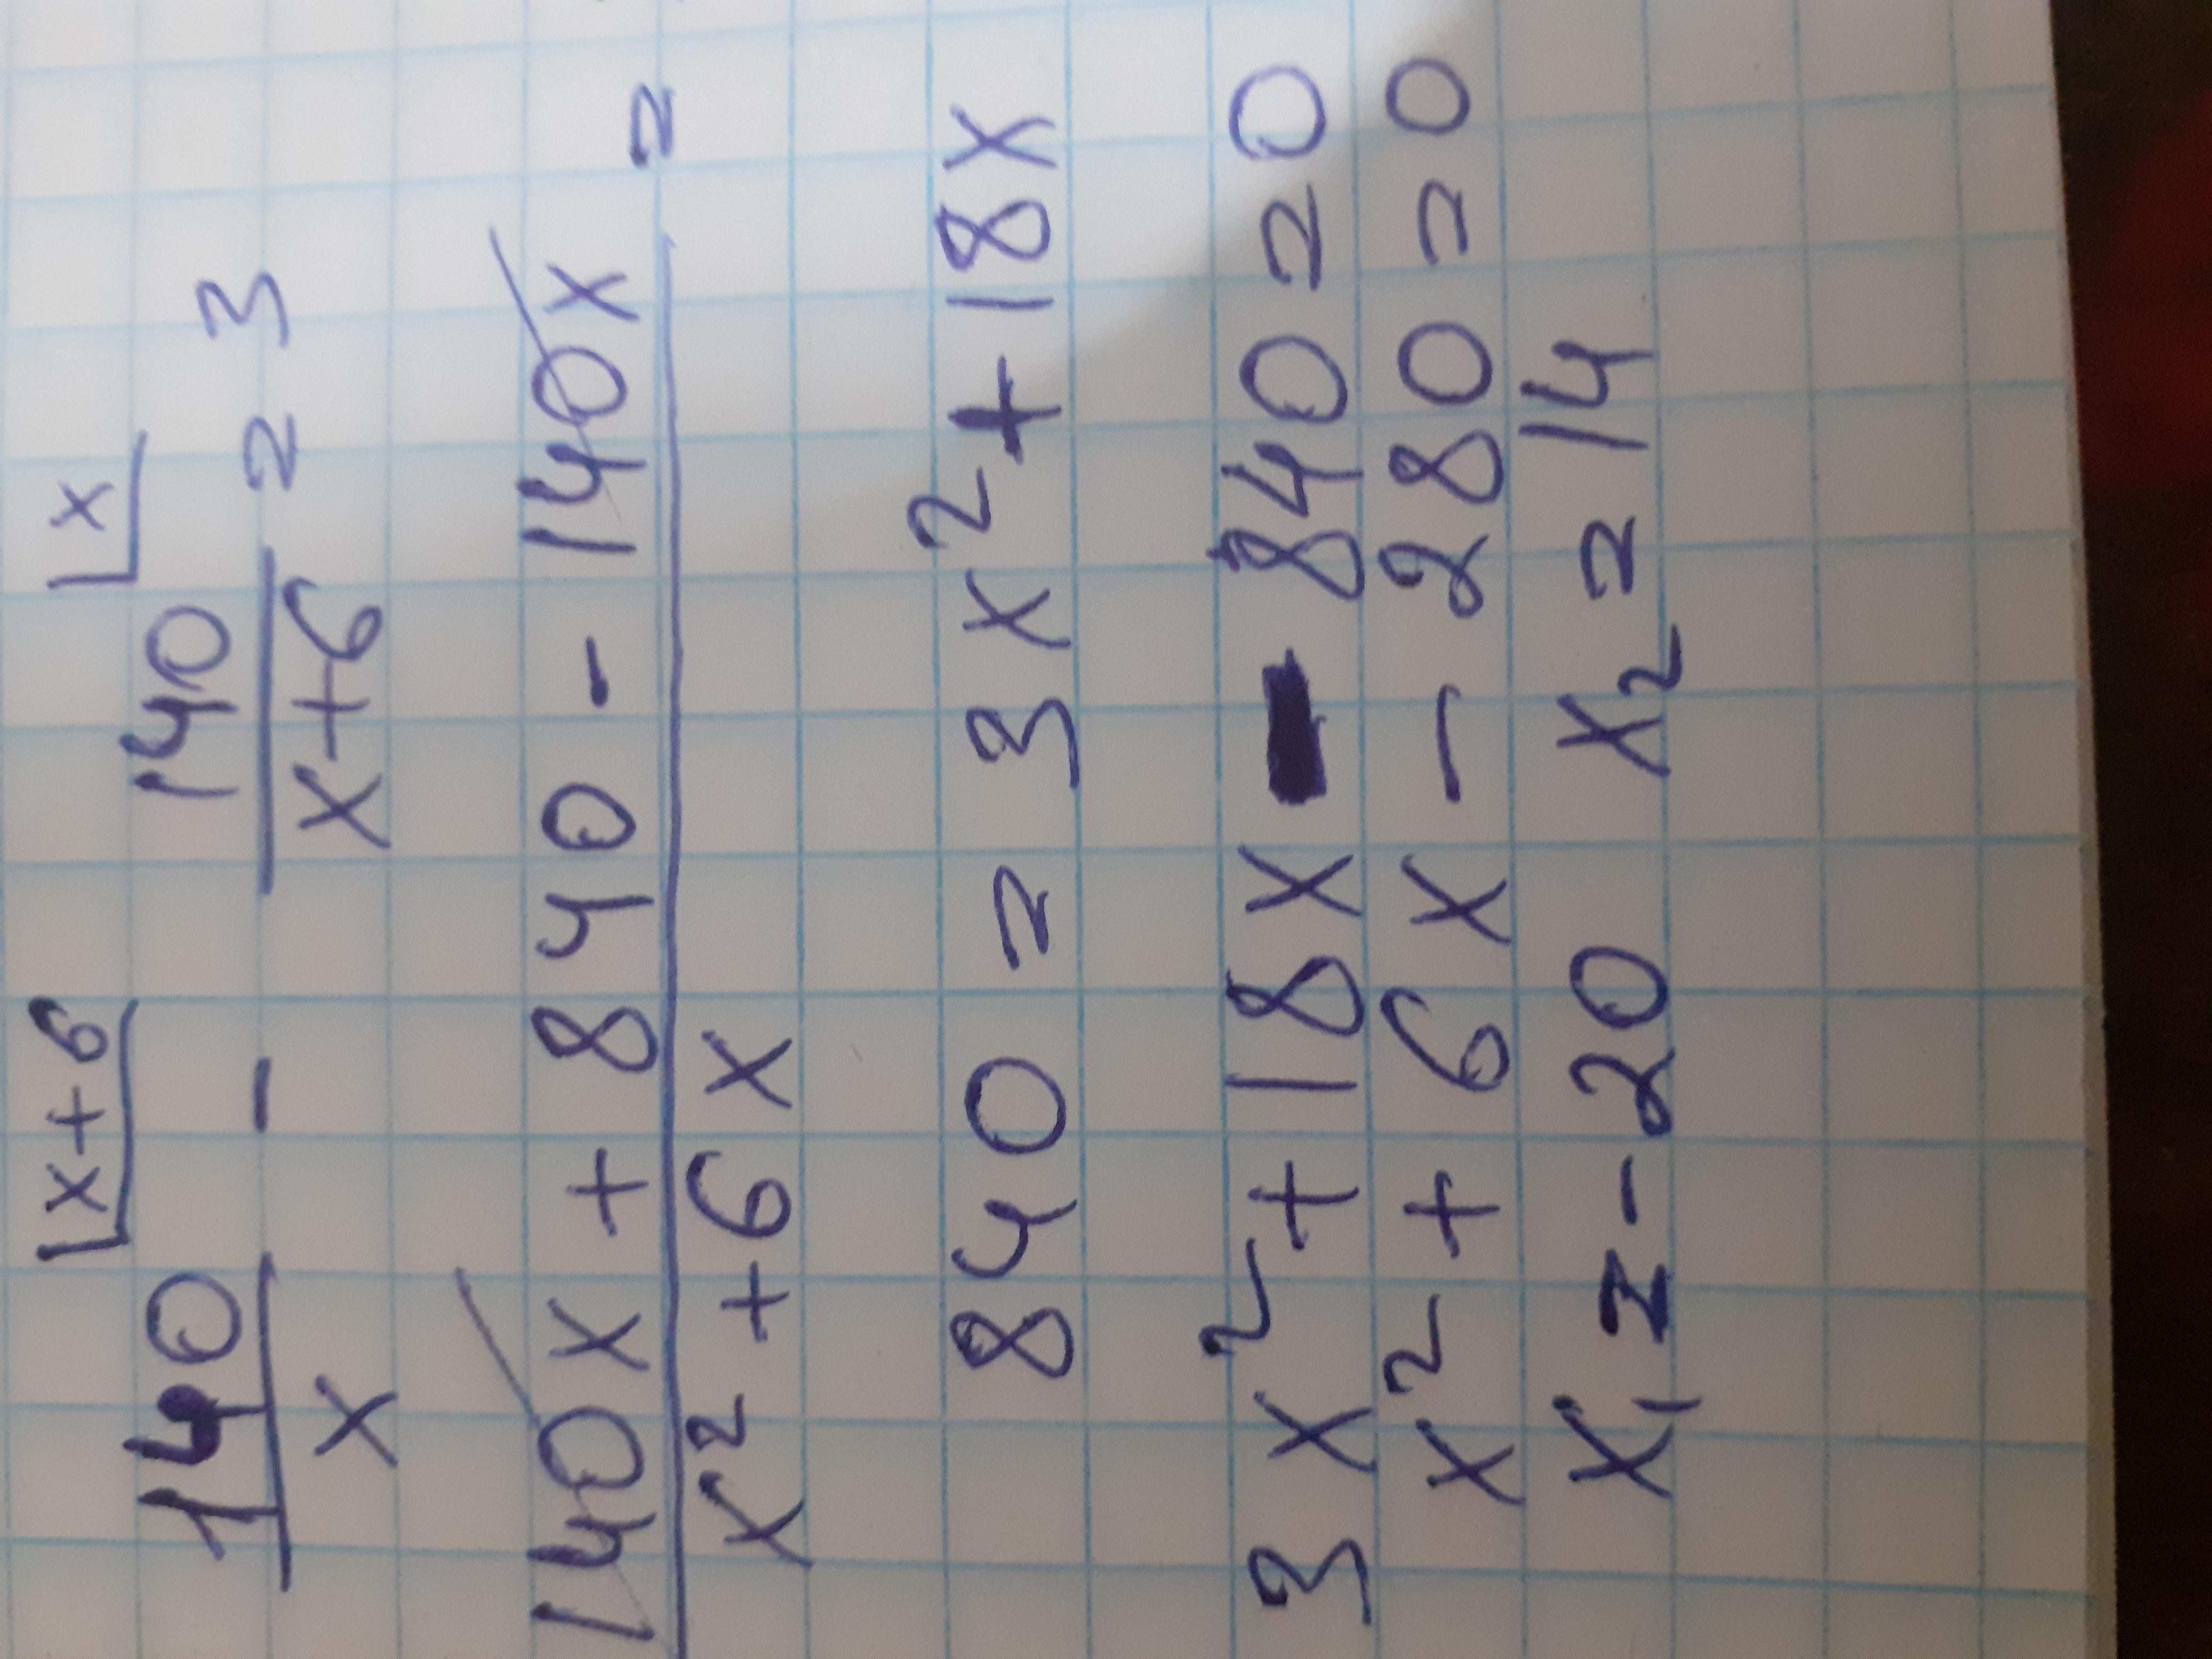 140/x |x+6 - 140/(x+6) |x = 3
(140x + 840 - 140x)/(x² + 6x) =
840 = 3x² + 18x
3x² + 18x - 840 = 0
x² + 6x - 280 = 0
x₁ = -20 x₂ = 14